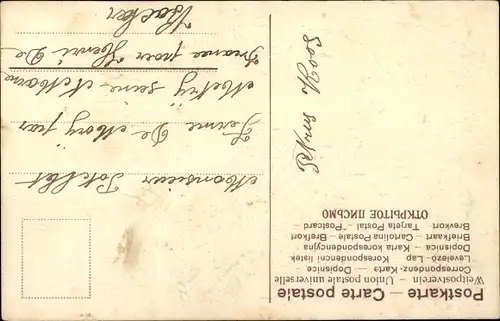 Postkarte — Carte postale
Weltpostverein — Union postale universelle
Correspondenz-Karte — Dopisnice
Levelező-Lap — Korespondencni listek
Dopisnica — Karta korespondencyjna
Briefkaart — Cartolina Postale — Brefkort
Brevkort — Tarjeta Postal — "Postcard"
ОТКРЫТОЕ ПИСЬМО
Monsieur
Ferme De Mory par
Mitry seine & Marne
France pour Henri De